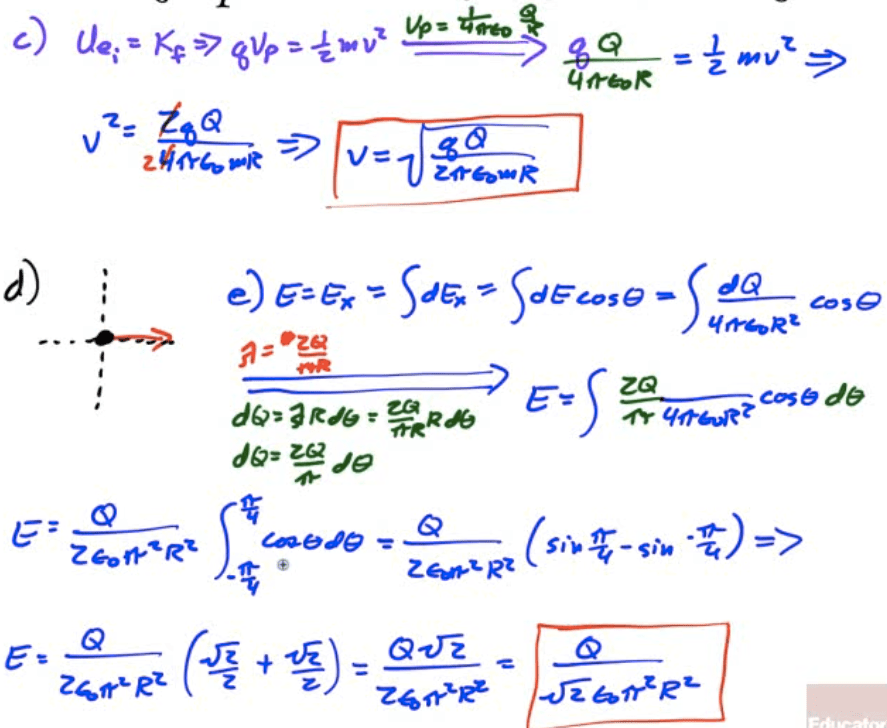 c) Ue,i = Kf ⇒ qVp = 1/2 mv² Vp = 1/(4πε0) Q/R ⇒ qQ/(4πε0R) = 1/2 mv² ⇒
v² = 2qQ/(4πε0mR) 2 ⇒ v = √(qQ/(2πε0mR))
d)
e) E = Ex = ∫dEx = ∫dE cosθ = ∫ dQ/(4πε0R²) cosθ
λ = 2Q/(πR)
dQ = λRdθ = 2Q/(πR) R dθ
dQ = 2Q/π dθ
E = ∫ 2Q/(π 4πε0R²) cosθ dθ
E = Q/(2ε0π²R²) ∫_{-π/4}^{π/4} cosθ dθ = Q/(2ε0π²R²) (sin π/4 - sin -π/4) ⇒
E = Q/(2ε0π²R²) (√2/2 + √2/2) = Q√2/(2ε0π²R²) = Q/(√2 ε0π²R²)
Educator